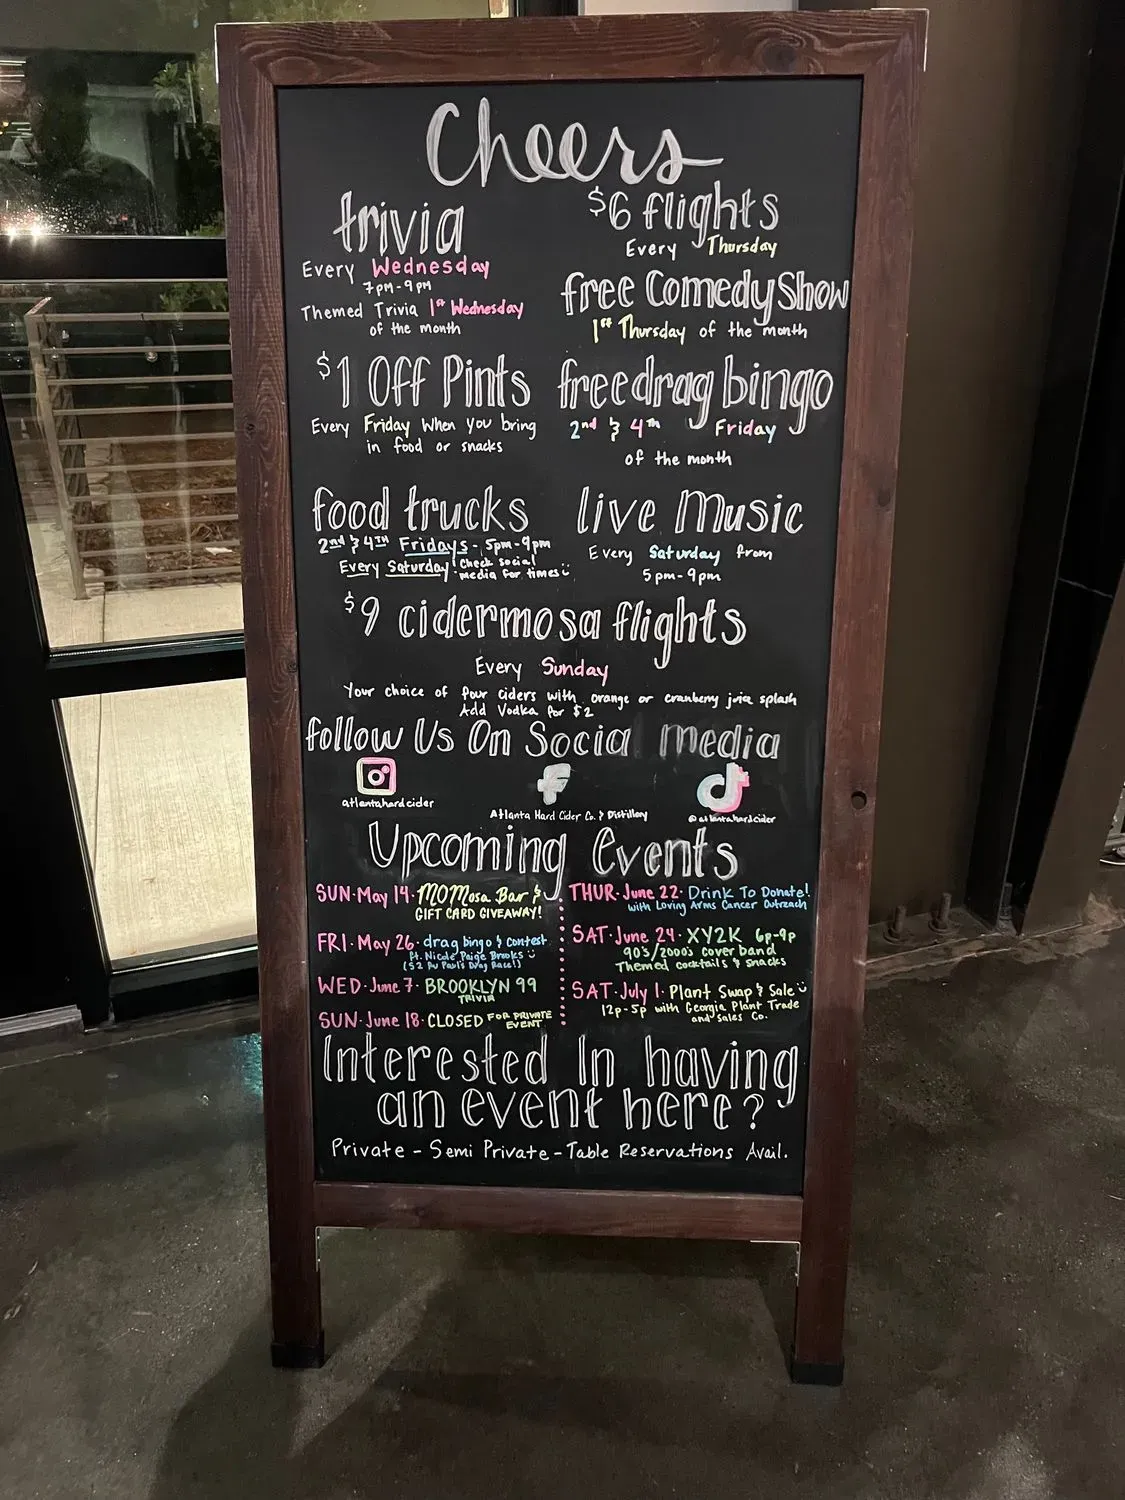 Cheers
trivia
Every Wednesday
7pm-9pm
Themed Trivia 1st Wednesday
of the month
$6 flights
Every Thursday
free Comedy Show
1st Thursday of the month
$1 Off Pints
Every Friday When you bring
in food or snacks
free drag bingo
2nd & 4th Friday
of the month
food trucks
2nd & 4TH Fridays - 5pm-9pm
Every Saturday! Check social
media for times
live Music
Every Saturday from
5pm-9pm
$9 cidermosa flights
Every Sunday
Your choice of four ciders with orange or cranberry juice splash
Add Vodka for $2
follow Us On Social media
atlantahardcider
Atlanta Hard Cider Co. & Distillery
@atlantahardcider
Upcoming Events
SUN·May 14·MOMosa Bar &
GIFT CARD GIVEAWAY!
FRI·May 26·drag bingo & contest
ft. Nicole Paige Brooks
(S2 Ru Paul's Drag Race!)
WED·June 7·BROOKLYN 99
TRIVIA
SUN·June 18·CLOSED FOR PRIVATE
EVENT
THUR·June 22·Drink To Donate!
with Loving Arms Cancer Outreach
SAT·June 24·XY2K 6p-9p
90's/2000's cover band
Themed cocktails & snacks
SAT·July 1·Plant Swap & Sale
12p-5p with Georgia Plant Trade
and Sales Co.
Interested In having
an event here?
Private - Semi Private - Table Reservations Avail.